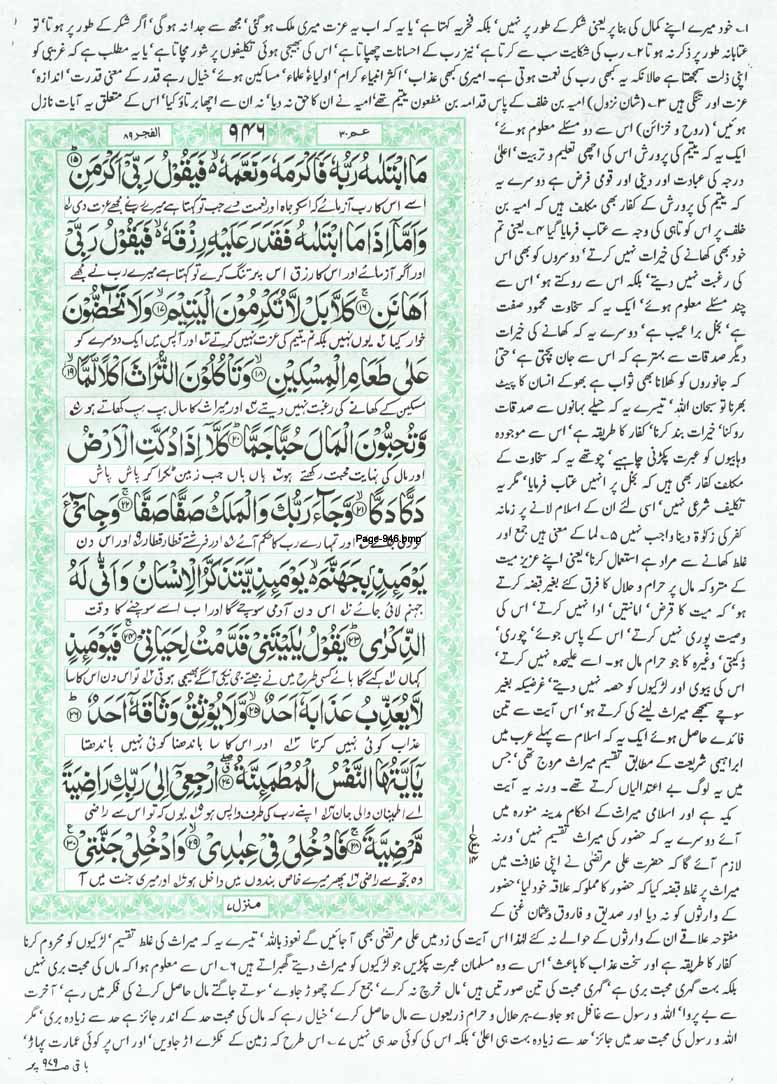 ۱۔ خود میرے اپنے کمال کی بنا پر یعنی شکر کے طور پر نہیں' بلکہ فخریہ کہتا ہے' یا یہ کہ اب یہ عزت میری ملک ہو گئی' مجھ سے جدا نہ ہو گی' اگر شکر کے طور پر ہوتا' تو
عتابانہ طور پر ذکر نہ ہوتا ۲۔ رب کی شکایت سب سے کرتا ہے' نیز رب کے احسانات چھپاتا ہے' اس کی بھیجی ہوئی تکلیفوں پر شور مچاتا ہے' یا یہ مطلب ہے کہ غریبی کو
اپنی ذلت سمجھتا ہے حالانکہ یہ بھی رب کی نعمت ہوتی ہے۔ امیری کبھی عذاب' اکثر انبیاء کرام' اولیاء' علماء' مساکین ہوئے' خیال رہے قدر کے معنی قدرت' اندازہ'
عزت اور تنگی ہیں ۳۔ (شان نزول) امیہ بن خلف کے پاس قدامہ بن مظعون یتیم تھے' امیہ نے ان کا حق نہ دیا' نہ ان سے اچھا برتاؤ کیا' اس کے متعلق یہ آیات نازل
ہوئیں' (روح و خزائن) اس سے دو مسئلے معلوم ہوئے'
ایک یہ کہ یتیم کی پرورش اس کی اچھی تعلیم و تربیت' اعلیٰ
درجہ کی عبادت اور دینی اور قومی فرض ہے دوسرے یہ
کہ یتیم کی پرورش کے کفار بھی مکلف ہیں کہ امیہ بن
خلف پر اس کوتاہی کی وجہ سے عتاب فرمایا گیا ۴۔ یعنی تم
خود بھی کھانے کی خیرات نہیں کرتے' دوسروں کو بھی اس
کی رغبت نہیں دیتے' بلکہ اس سے روکتے ہو' اس سے
چند مسئلے معلوم ہوئے' ایک یہ کہ سخاوت محمود صفت
ہے' بخل برا عیب ہے' دوسرے یہ کہ کھانے کی خیرات
دیگر صدقات سے بہتر ہے کہ اس سے جان بچتی ہے' حتیٰ
کہ جانوروں کو کھلانا بھی ثواب ہے بھوکے انسان کا پیٹ
بھرنا تو سبحان اللہ' تیسرے یہ کہ حیلے بہانوں سے صدقات
روکنا' خیرات بند کرنا' کفار کا طریقہ ہے' اس سے موجودہ
وہابیوں کو عبرت پکڑنی چاہیے' چوتھے یہ کہ سخاوت کے
مکلف کفار بھی ہیں کہ بخل پر انہیں عتاب فرمایا' مگر یہ
تکلیف شرعی نہیں' اسی لئے ان کے اسلام لانے پر زمانہ
کفر کی زکوٰۃ دینا واجب نہیں ۵۔ لما کے معنی ہیں جمع اور
غلط کھانے سے مراد ہے استعمال کرنا' یعنی اپنے عزیز میت
کے متروکہ مال پر حرام و حلال کا فرق کئے بغیر قبضہ کرتے
ہو' کہ میت کا قرض' امانتیں' ادا نہیں کرتے' اس کی
وصیت پوری نہیں کرتے' اس کے پاس جوئے' چوری'
ڈکیتی' وغیرہ کا جو حرام مال ہو۔ اسے علیحدہ نہیں کرتے'
اس کی بیوی اور لڑکیوں کو حصہ نہیں دیتے' غرضیکہ بغیر
سوچے سمجھے میراث لینے کی کرتے ہو' اس آیت سے تین
فائدے حاصل ہوئے ایک یہ کہ اسلام سے پہلے عرب میں
ابراہیمی شریعت کے مطابق تقسیم میراث مروج تھی' جس
میں یہ لوگ بے اعتدالیاں کرتے تھے۔ ورنہ یہ آیت
مکیہ ہے اور اسلامی میراث کے احکام مدینہ منورہ میں
آئے دوسرے یہ کہ حضور کی میراث تقسیم نہیں' ورنہ
لازم آئے گا کہ حضرت علی مرتضیٰ نے اپنی خلافت میں
میراث پر غلط قبضہ کیا کہ حضور کا مملوکہ علاقہ خود لیا' حضور
کے وارثوں کو نہ دیا اور صدیق و فاروق و عثمان غنی کے
مفتوحہ علاقے ان کے وارثوں کے حوالے نہ کئے لہذا اس آیت کی زد میں علی مرتضیٰ بھی آ جائیں گے نعوذ باللہ' تیسرے یہ کہ میراث کی غلط تقسیم' لڑکیوں کو محروم کرنا
کفار کا طریقہ ہے اور سخت عذاب کا باعث' اس سے وہ مسلمان عبرت پکڑیں جو لڑکیوں کو میراث دیتے گھبراتے ہیں ۶۔ اس سے معلوم ہوا کہ مال کی محبت بری نہیں
بلکہ بہت گہری محبت بری ہے' گہری محبت کی تین صورتیں ہیں' مال خرچ نہ کرے' جمع کر کے چھوڑ جاوے' سوتے جاگتے مال حاصل کرنے کی فکر میں رہے' آخرت
سے بے پروا' اللہ و رسول سے غافل ہو جاوے' ہر حلال و حرام ذریعوں سے مال حاصل کرے' خیال رہے کہ مال کی محبت حد کے اندر جائز ہے حد سے زیادہ بری' مگر
اللہ و رسول کی محبت حد میں جائز' حد سے زیادہ بہت ہی اعلیٰ' بلکہ اس کی کوئی حد ہی نہیں ۷۔ اس طرح کہ زمین کے ٹکڑے اڑ جاویں' اور اس پر کوئی عمارت پہاڑ'
باقی صہ ۹۷۹ پر
عمّ۳۰ ۹۴۶ الفجر۸۹
مَا ابْتَلٰىهُ رَبُّهٗ فَاَكْرَمَهٗ وَنَعَّمَهٗ ۙ فَیَقُوْلُ رَبِّیْۤ اَكْرَمَنِ ؕ۱۵
اسے اس کا رب آزمائے کہ اسکو جاہ اور نعمت دے جب تو کہتا ہے میرے رب نے مجھے عزت دی ۱
وَاَمَّاۤ اِذَا مَا ابْتَلٰىهُ فَقَدَرَ عَلَیْهِ رِزْقَهٗ ۙ فَیَقُوْلُ رَبِّیْۤ
اور اگر آزمائے اور اس کا رزق اس پر تنگ کرے تو کہتا ہے میرے رب نے مجھے
اَهَانَنِ ۚ۱۶ كَلَّا بَلْ لَّا تُكْرِمُوْنَ الْیَتِیْمَ ۙ۱۷ وَلَا تَحٰٓضُّوْنَ
خوار کیا ۲ یوں نہیں بلکہ تم یتیم کی عزت نہیں کرتے ۳ اور آپس میں ایک دوسرے کو
عَلٰى طَعَامِ الْمِسْكِیْنِ ۙ۱۸ وَتَاْكُلُوْنَ التُّرَاثَ اَكْلًا لَّمًّا ۙ۱۹
مسکین کے کھانے کی رغبت نہیں دیتے ۴ اور میراث کا مال ہپ ہپ کھاتے ہو ۵
وَّتُحِبُّوْنَ الْمَالَ حُبًّا جَمًّا ؕ۲۰ كَلَّاۤ اِذَا دُكَّتِ الْاَرْضُ
اور مال کی نہایت محبت رکھتے ہو ۶ ہاں ہاں جب زمین ٹکرا کر پاش پاش
دَكًّا دَكًّا ۙ۲۱ وَّجَآءَ رَبُّكَ وَالْمَلَكُ صَفًّا صَفًّا ۚ۲۲ وَجِایْٓءَ
Page-946.bmp
اور تمہارے رب کا حکم آئے ۸ اور فرشتے قطار قطار ۹ اور اس دن
یَوْمَىِٕذٍۭ بِجَهَنَّمَ ۙ یَوْمَىِٕذٍ یَّتَذَكَّرُ الْاِنْسَانُ وَاَنّٰى لَهُ
جہنم لائی جائے ۱۰ اس دن آدمی سوچے گا ۱۱ اور اب اسے سوچنے کا وقت
الذِّكْرٰى ؕ۲۳ یَقُوْلُ یٰلَیْتَنِیْ قَدَّمْتُ لِحَیَاتِیْ ۚ۲۴ فَیَوْمَىِٕذٍ
کہاں ۱۲ کہے گا ہائے کسی طرح میں نے جیتے جی نیکی آگے بھیجی ہوتی ۱۳ تو اس دن اس کا سا
لَّا یُعَذِّبُ عَذَابَهٗۤ اَحَدٌ ۙ۲۵ وَّلَا یُوْثِقُ وَثَاقَهٗۤ اَحَدٌ ؕ۲۶
عذاب کوئی نہیں کرتا ۱۴ اور اس کا سا باندھنا کوئی نہیں باندھتا
یٰۤاَیَّتُهَا النَّفْسُ الْمُطْمَىِٕنَّةُ ۖ۲۷ ارْجِعِیْۤ اِلٰى رَبِّكِ رَاضِیَةً
اے اطمینان والی جان ۱۵ اپنے رب کی طرف واپس ہو یوں کہ تو اس سے راضی
مَّرْضِیَّةً ۚ۲۸ فَادْخُلِیْ فِیْ عِبٰدِیْ ۙ۲۹ وَادْخُلِیْ جَنَّتِیْ ۠۳۰
وہ تجھ سے راضی پھر میرے خاص بندوں میں داخل ہو اور میری جنت میں آ
منزل۷